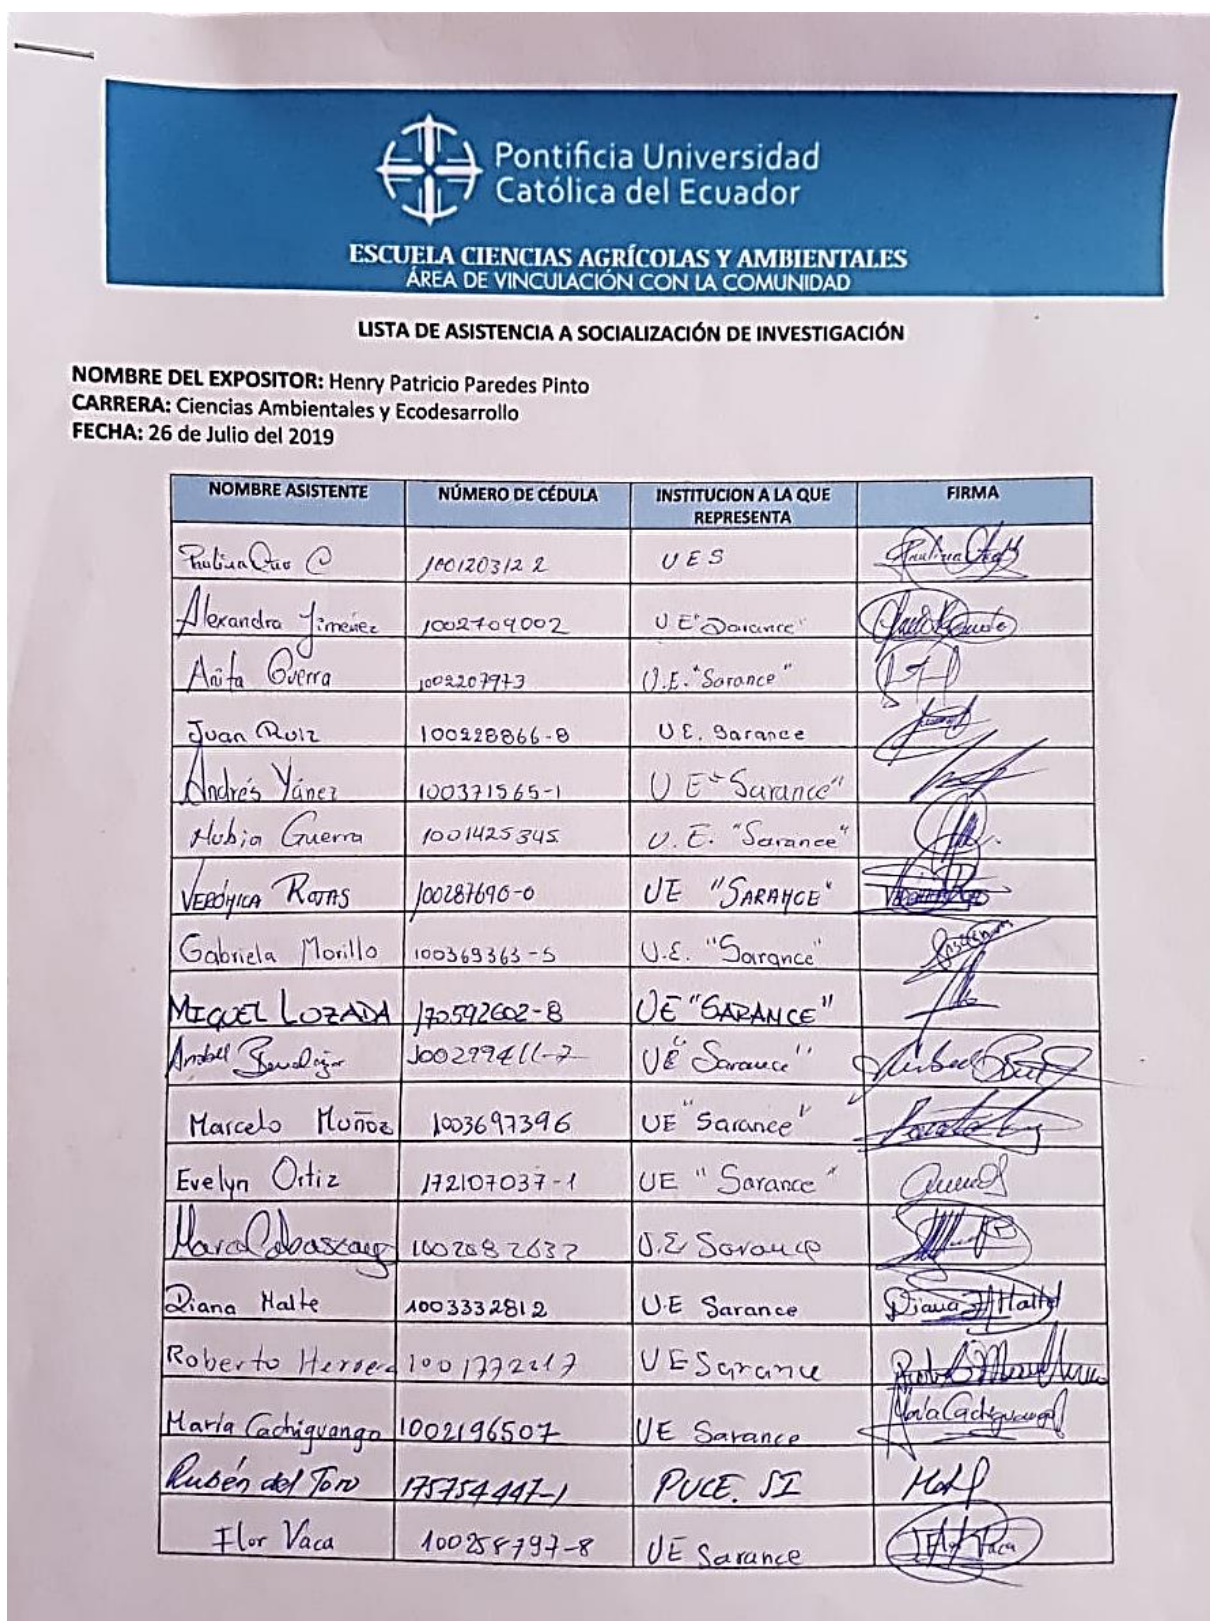 Pontificia Universidad
Católica del Ecuador
ESCUELA CIENCIAS AGRÍCOLAS Y AMBIENTALES
ÁREA DE VINCULACIÓN CON LA COMUNIDAD
LISTA DE ASISTENCIA A SOCIALIZACIÓN DE INVESTIGACIÓN
NOMBRE DEL EXPOSITOR: Henry Patricio Paredes Pinto
CARRERA: Ciencias Ambientales y Ecodesarrollo
FECHA: 26 de Julio del 2019
NOMBRE ASISTENTE NÚMERO DE CÉDULA INSTITUCION A LA QUE REPRESENTA FIRMA
100120312 2 UES
Alexandra Jiménez 1002709002 U.E "Sarance"
Anita Guerra 1002207973 U.E. "Sarance"
Juan Ruiz 100228866-8 UE. Sarance
Andrés Yánez 100371565-1 U E "Sarance"
Nubia Guerra 1001425345 U.E. "Sarance"
VERÓNICA ROJAS 100287690-0 UE "SARANCE"
Gabriela Morillo 100369363-5 U.E. "Sarance"
MIGUEL LOZADA 170592602-8 UE "SARANCE"
Anabel UE "Sarance"
Marcelo Muñoz 1003697396 UE "Sarance"
Evelyn Ortiz 172107037-1 UE "Sarance"
1002082632 U.E Sarance
Diana Malte 1003332812 U.E Sarance Diana Malte
Roberto Herrera 1001772217 UE Sarance
María Cachiguango 1002196507 UE Sarance María Cachiguango
Rubén del Toro 175754447-1 PUCE. SI
Flor Vaca 100258797-8 UE Sarance Flor Vaca